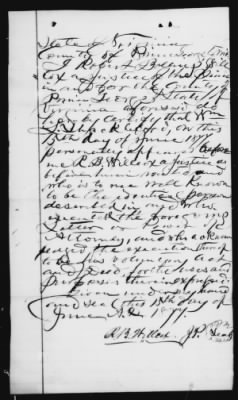 State of Virginia
County of Prince George to wit
I Robert Willcox
a Justice of the Peace
in and for the County of
Prince George State of
Virginia aforesaid do
hereby certify that Wm
on this
15th day of June 1877
personally appeared before
me R. B. Willcox a justice as
before mentioned and
who is to me well known
to be the identical person
described in and who
executed the foregoing
Letter or Power of
Attorney, and acknow
the execution thereof
to be his voluntary act
and deed, for the uses and
purposes therein expressed
Given under my hand
and seal this 15th day of
June A.D. 1877.
R. B. Willcox J.P. Seal